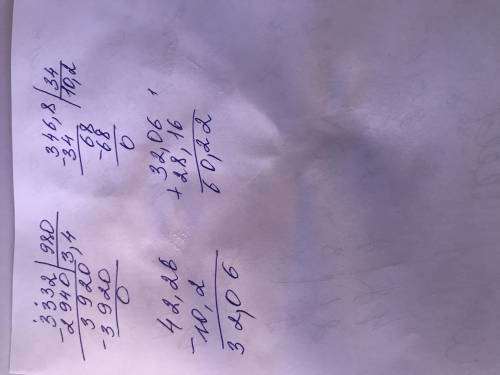 3332 | 980
-2940 | 3,4
3920
-3920
0
346,8 | 34
-34 | 10,2
68
-68
0
42,26
-10,2
32,06
32,06
+28,16
60,22